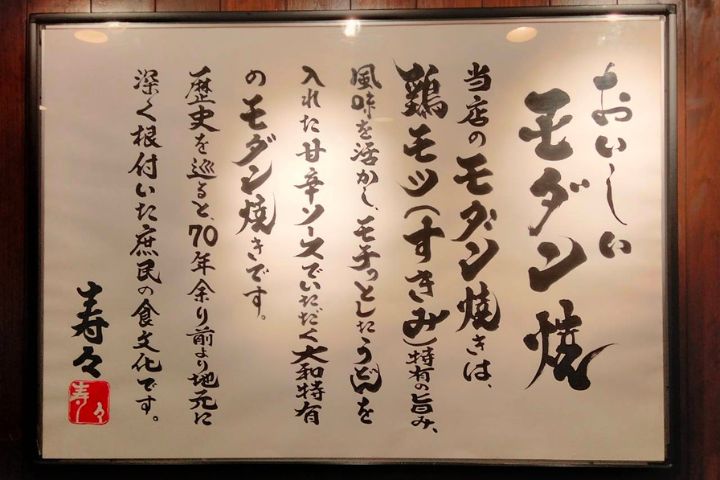 おいしい
モダン焼
当店のモダン焼きは、
鶏モツ(すきみ)特有の旨み、
風味を活かし、モチっとしたうどんを
入れた甘辛ソースでいただく大和特有
のモダン焼きです。
歴史を巡ると、70年余り前より地元に
深く根付いた庶民の食文化です。
寿々
寿々